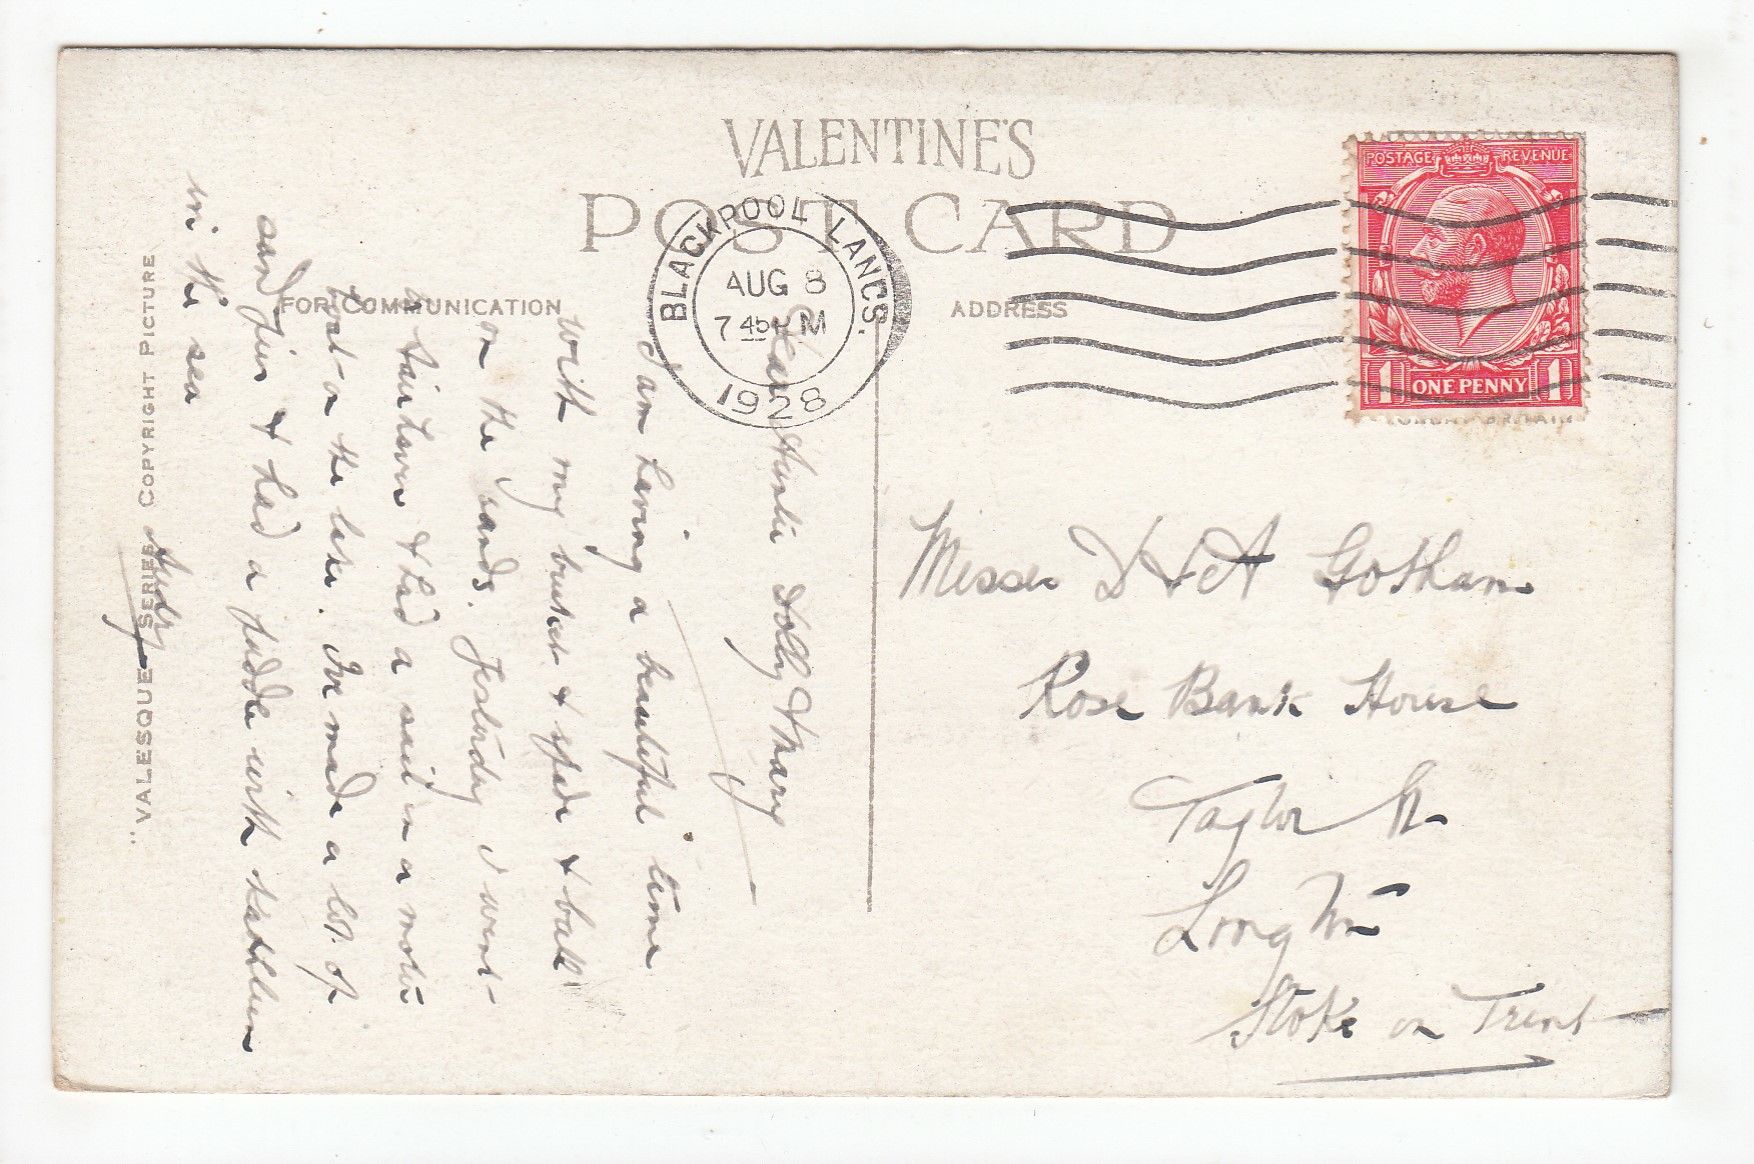 VALENTINE'S
POST CARD
FOR COMMUNICATION
ADDRESS
BLACKPOOL LANCS.
AUG 8
7 45 PM
1928
POSTAGE REVENUE
1 ONE PENNY 1
Dear Auntie Dolly & Mary
I am having a beautiful time
with my bucket & spade & ball
on the sands. Yesterday I went
to Fairhaven & had a sail in a motor
boat on the lake. I've made a lot of
sand pies & had a paddle with Kathleen
in the sea
Audry
"VALESQUE" SERIES COPYRIGHT PICTURE
Misses D & A Gotham
Rose Bank House
Taylor St
Longton
Stoke on Trent